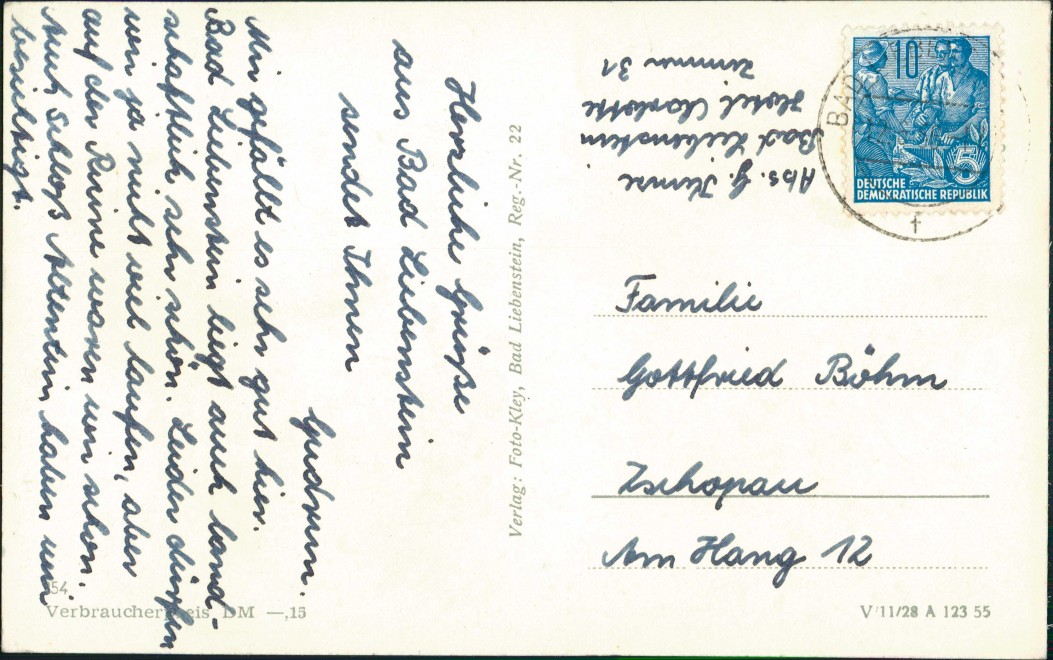 Herzliche Grüße
aus Bad Liebenstein
sendet Ihnen
Gudrun.
Mir gefällt es sehr gut hier.
Bad Liebenstein liegt auch land-
schaftlich sehr schön. Leider dürfen
wir ja nicht viel laufen, aber
auf der Ruine waren wir schon.
Auch Schloß Altenstein haben wir
besichtigt.
Verlag: Foto-Kley, Bad Liebenstein, Reg.-Nr. 22
Abs. G.
Bad Liebenstein
Hotel Charlotte
Zimmer 31
10
5
DEUTSCHE
DEMOKRATISCHE REPUBLIK
BAD
f
Familie
Gottfried Böhm
Zschopau
Am Hang 12
54
Verbraucherpreis DM —,15
V/11/28 A 123 55